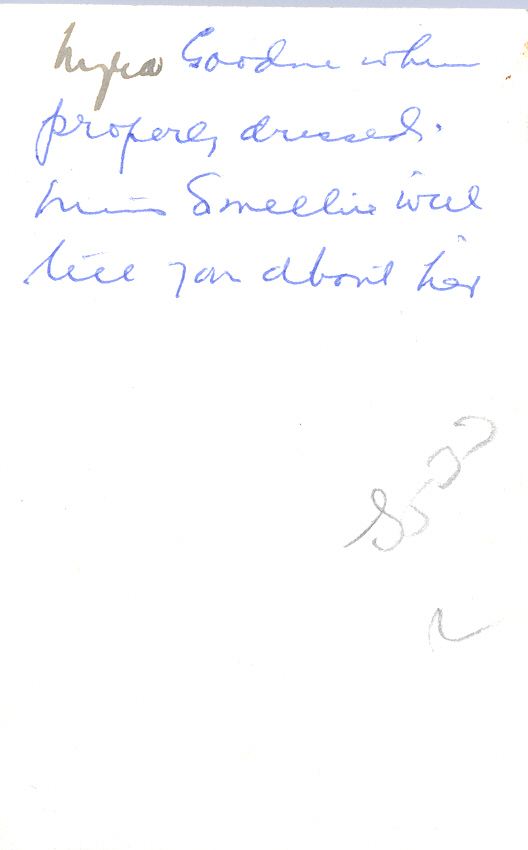 Myra Goodne when
properly dressed.
Miss Smellie will
tell you about her